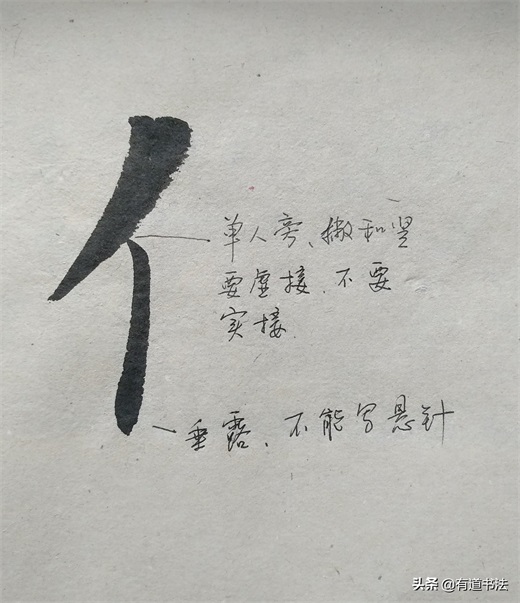 亻
单人旁、撇和竖
要虚接、不要
实接.
垂露、不能写悬针
头条@有道书法